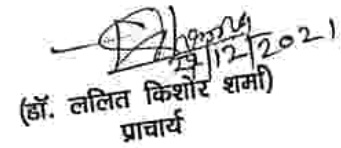 27/12/2021
(डॉ. ललित किशोर शर्मा)
प्राचार्य